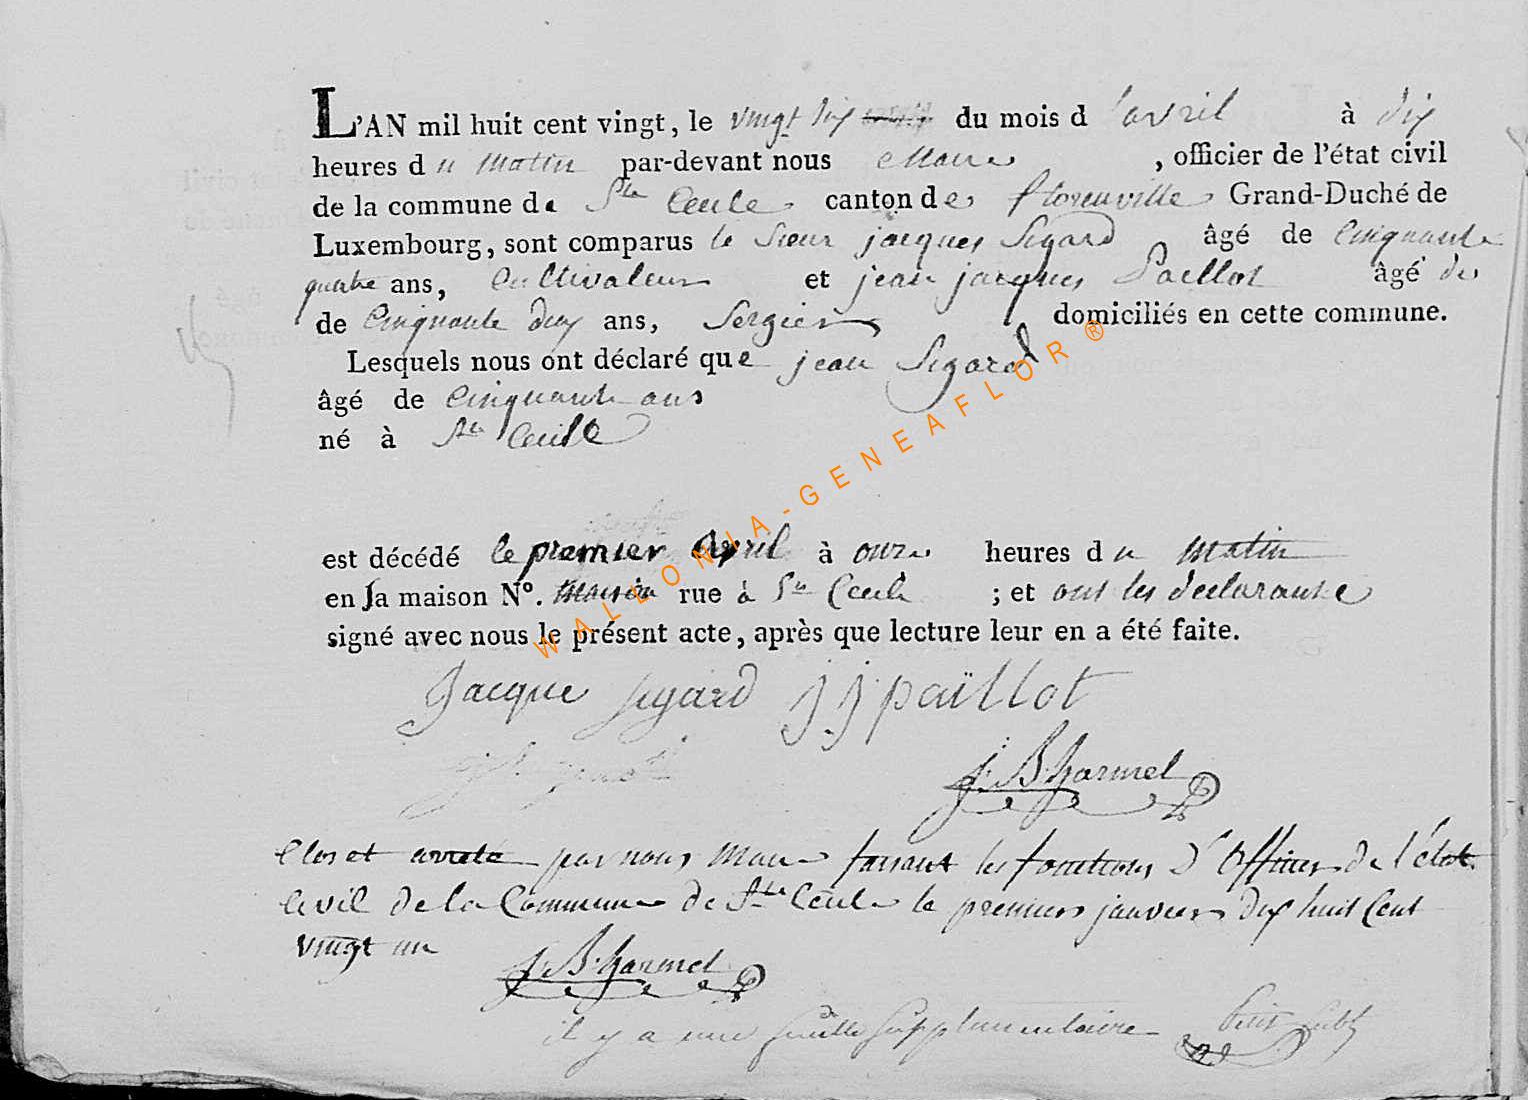 L'AN mil huit cent vingt, le vingt dix du mois d'avril à dix
heures du matin par-devant nous Maire, officier de l'état civil
de la commune de Ste Cecile canton de florenville Grand-Duché de
Luxembourg, sont comparus le sieur jacques Sigard âgé de Cinquante
quatre ans, Cultivateur et jean jacques Paillot âgé de
de Cinquante deux ans, Sergier domiciliés en cette commune.
Lesquels nous ont déclaré que jean Sigard
âgé de Cinquante ans
né à Ste Cecile
est décédé le premier avril à onze heures du matin
en sa maison N°. maison rue à Ste Cecile ; et ont les declarants
signé avec nous le présent acte, après que lecture leur en a été faite.
Jacque sigard j j paillot
J. B. harmel
Clos et arreté par nous Maire faisant les fonctions d'Officier de l'état
Civil de la Commune de Ste Cecile le premier janvier dix huit Cent
vingt un
J. B. harmel
il y a une feuille supplementaire Petit
WALLONIA-GENEAFLOR ®